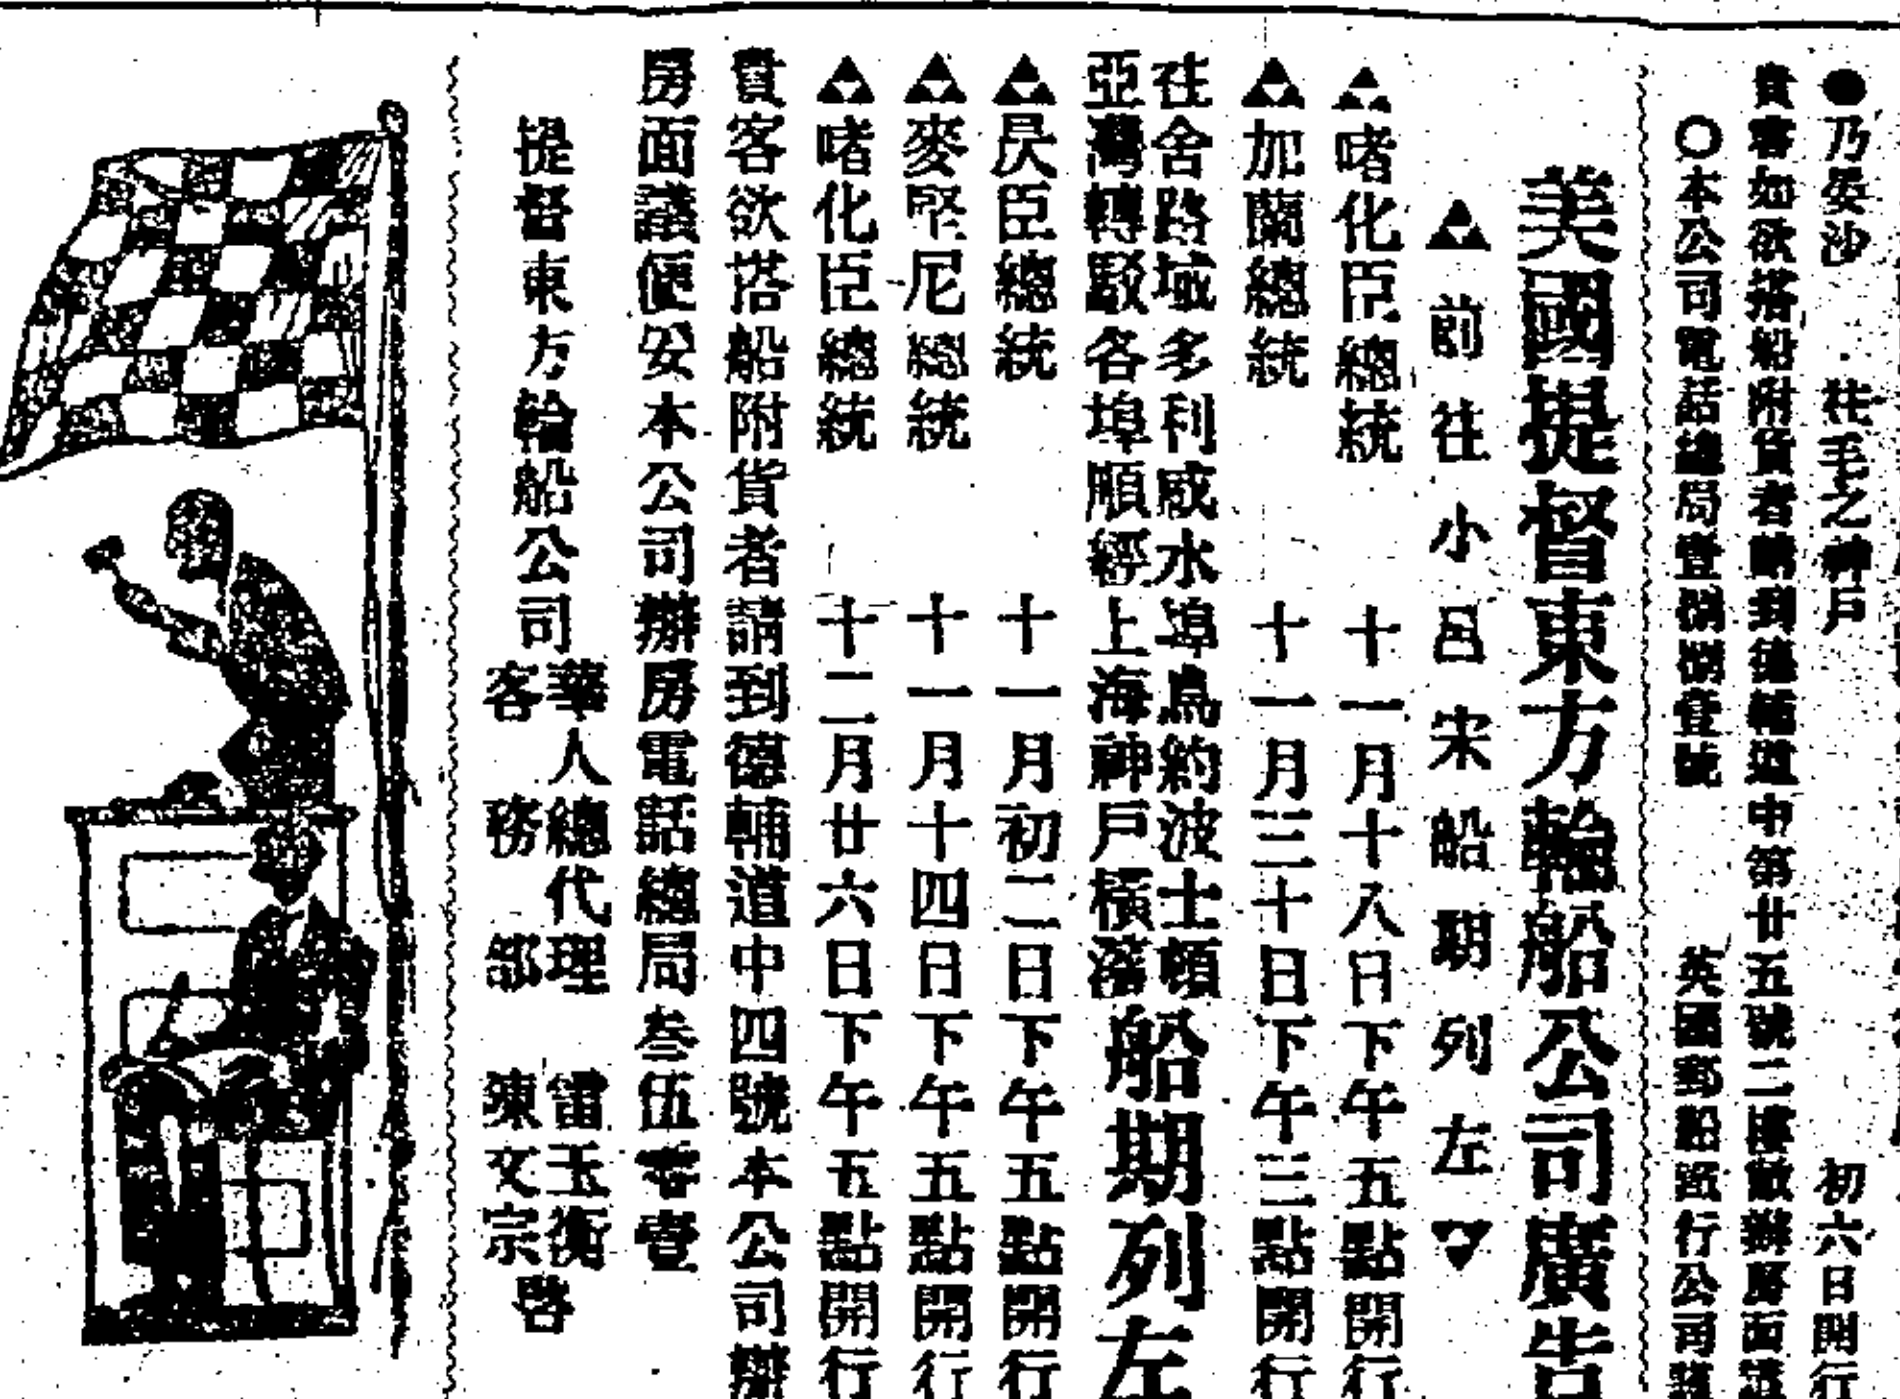 ●乃晏沙 往毛之神戶 初六日開行
貴客如欲搭船附貨者請到德輔道中第廿五號二樓敝辦房面議
○本公司電話總局壹捌捌壹號 英國郵船公司
美國提督東方輪船公司廣告
▲前往小呂宋船期列左▼
▲啫化臣總統 十一月十八日下午五點開行
▲加蘭總統 十一月三十日下午三點開行
往舍路域多利咸水埠鳥約波士頓
亞灣轉駁各埠順經上海神戶橫濱
船期列左
▲昃臣總統 十一月初二日下午五點開行
▲麥堅尼總統 十一月十四日下午五點開行
▲啫化臣總統 十二月廿六日下午五點開行
貴客欲搭船附貨者請到德輔道中四號本公司辦
房面議便妥本公司辦房電話總局叁伍零壹
提督東方輪船公司
華人總代理 雷玉衡
客務部 陳文宗
啓